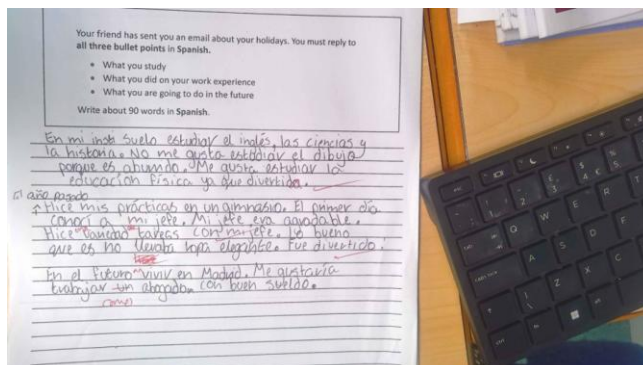 Your friend has sent you an email about your holidays. You must reply to
all three bullet points in Spanish.
• What you study
• What you did on your work experience
• What you are going to do in the future
Write about 90 words in Spanish.
En mi insti suelo estudiar el inglés, las ciencias y
la historia. No me gusta estudiar el dibujo
porque es aburrido. Me gusta estudiar la
educación física ya que divertido.
El año pasado
Hice mis prácticas en un gimnasio. El primer día
conocí a mi jefe. Mi jefe era agradable.
Hice tareas con mi jefe. Lo bueno
que es no llevaba ropa elegante. Fue divertido.
En el futuro vivir en Madrid. Me gustaría
trabajar un abogado. con buen sueldo.
(como)